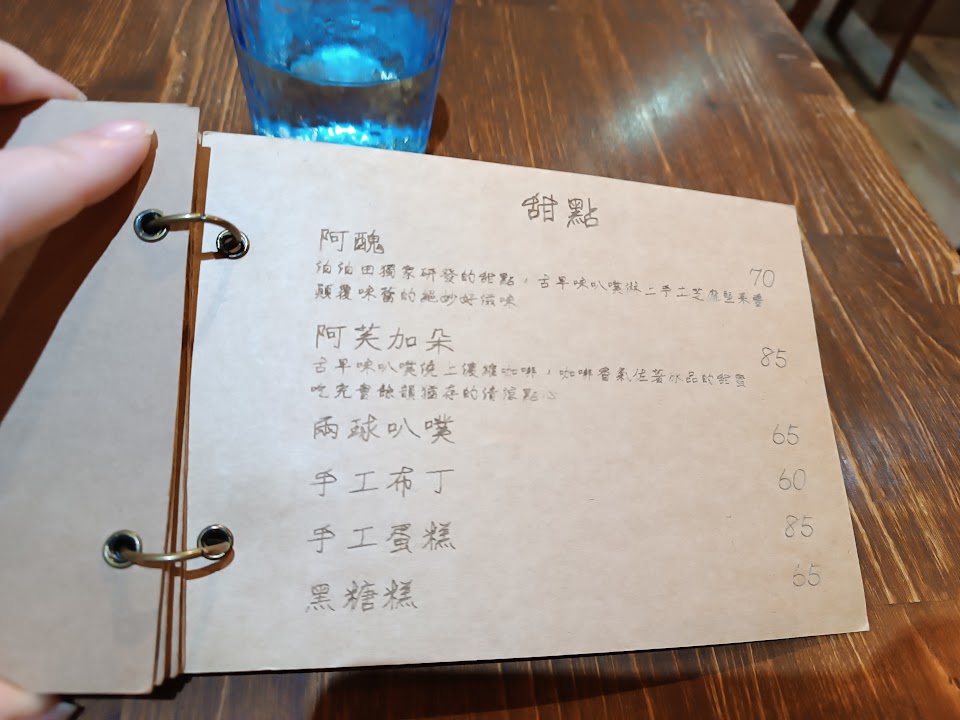 甜點
阿醜 70
伯伯田獨家研發的甜點，古早味叭噗做二手工芝麻
顛覆味蕾的絕妙好滋味
阿芙加朵 85
古早味叭噗澆上濃縮咖啡，咖啡香氣佐著冰品的甜蜜
吃完會餘韻猶存的清涼點心
兩球叭噗 65
手工布丁 60
手工蛋糕 85
黑糖糕 65